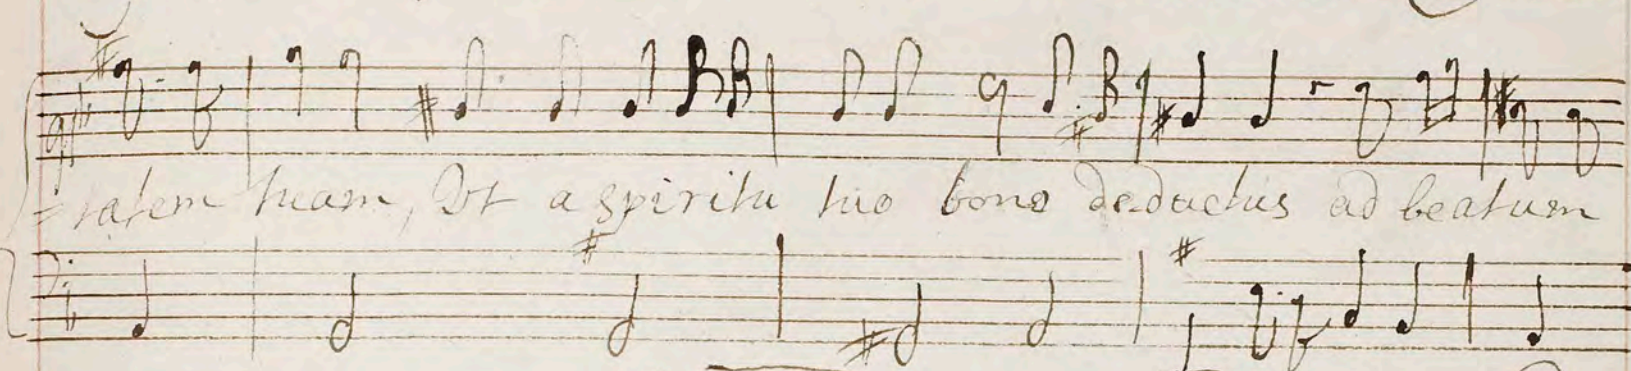 =tatem tuam, Ut a spiritu tuo bono deductus ad beatum